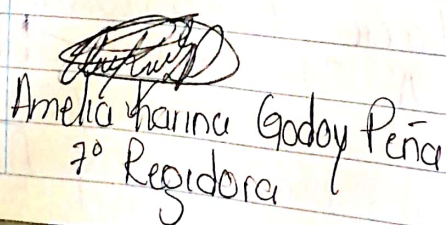 Amelia Karina Godoy Peña
7° Regidora